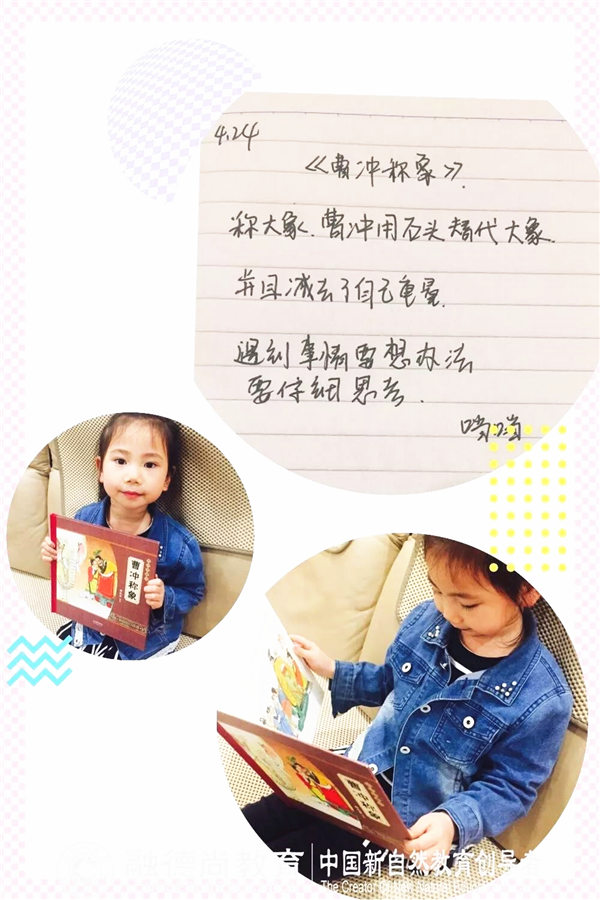 4.24
《曹冲称象》.
称大象.曹冲用石头替代大象.
并且减去了自己重量.
遇到事情要想办法
要仔细思考.
当当
曹冲称象
曹冲称象
教育
中国新自然教育创导者